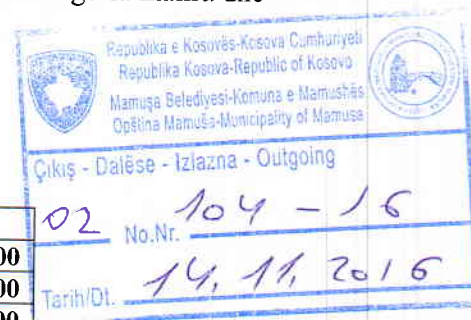 Republika e Kosovës-Kosova Cumhuriyeti
Republika Kosova-Republic of Kosovo
Mamuşa Belediyesi-Komuna e Mamushës
Opština Mamuša-Municipality of Mamusa
Çıkış - Dalëse - Izlazna - Outgoing
02 No.Nr. 104 - 16
00
Tarih/Dt. 14. 11. 2016
00
00